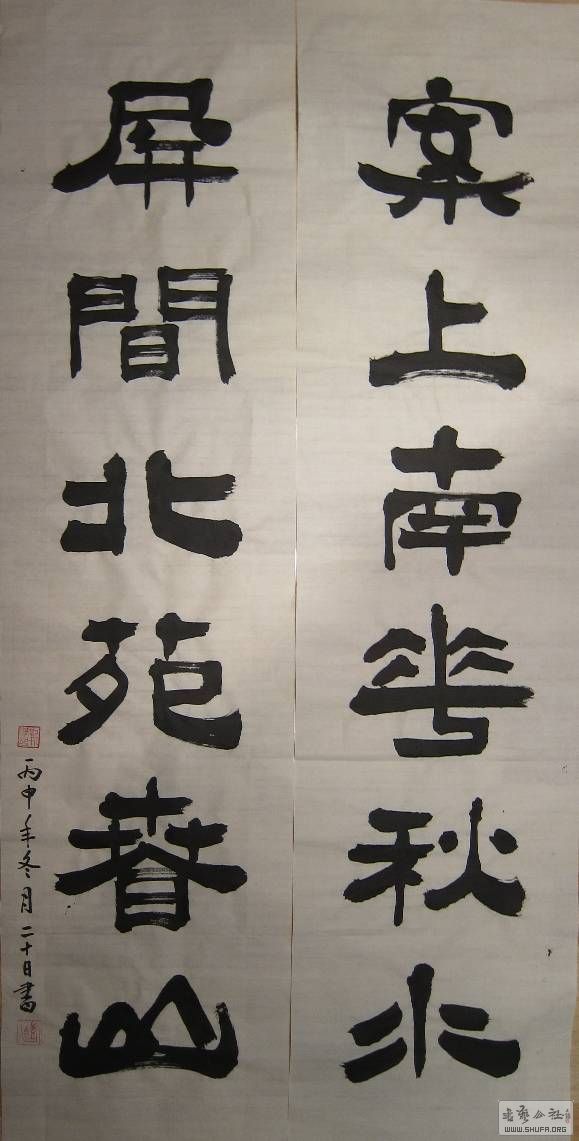 案上南華秋水
屏間北苑春山
丙申年冬月二十日書
书艺公社
WWW.SHUFA.ORG